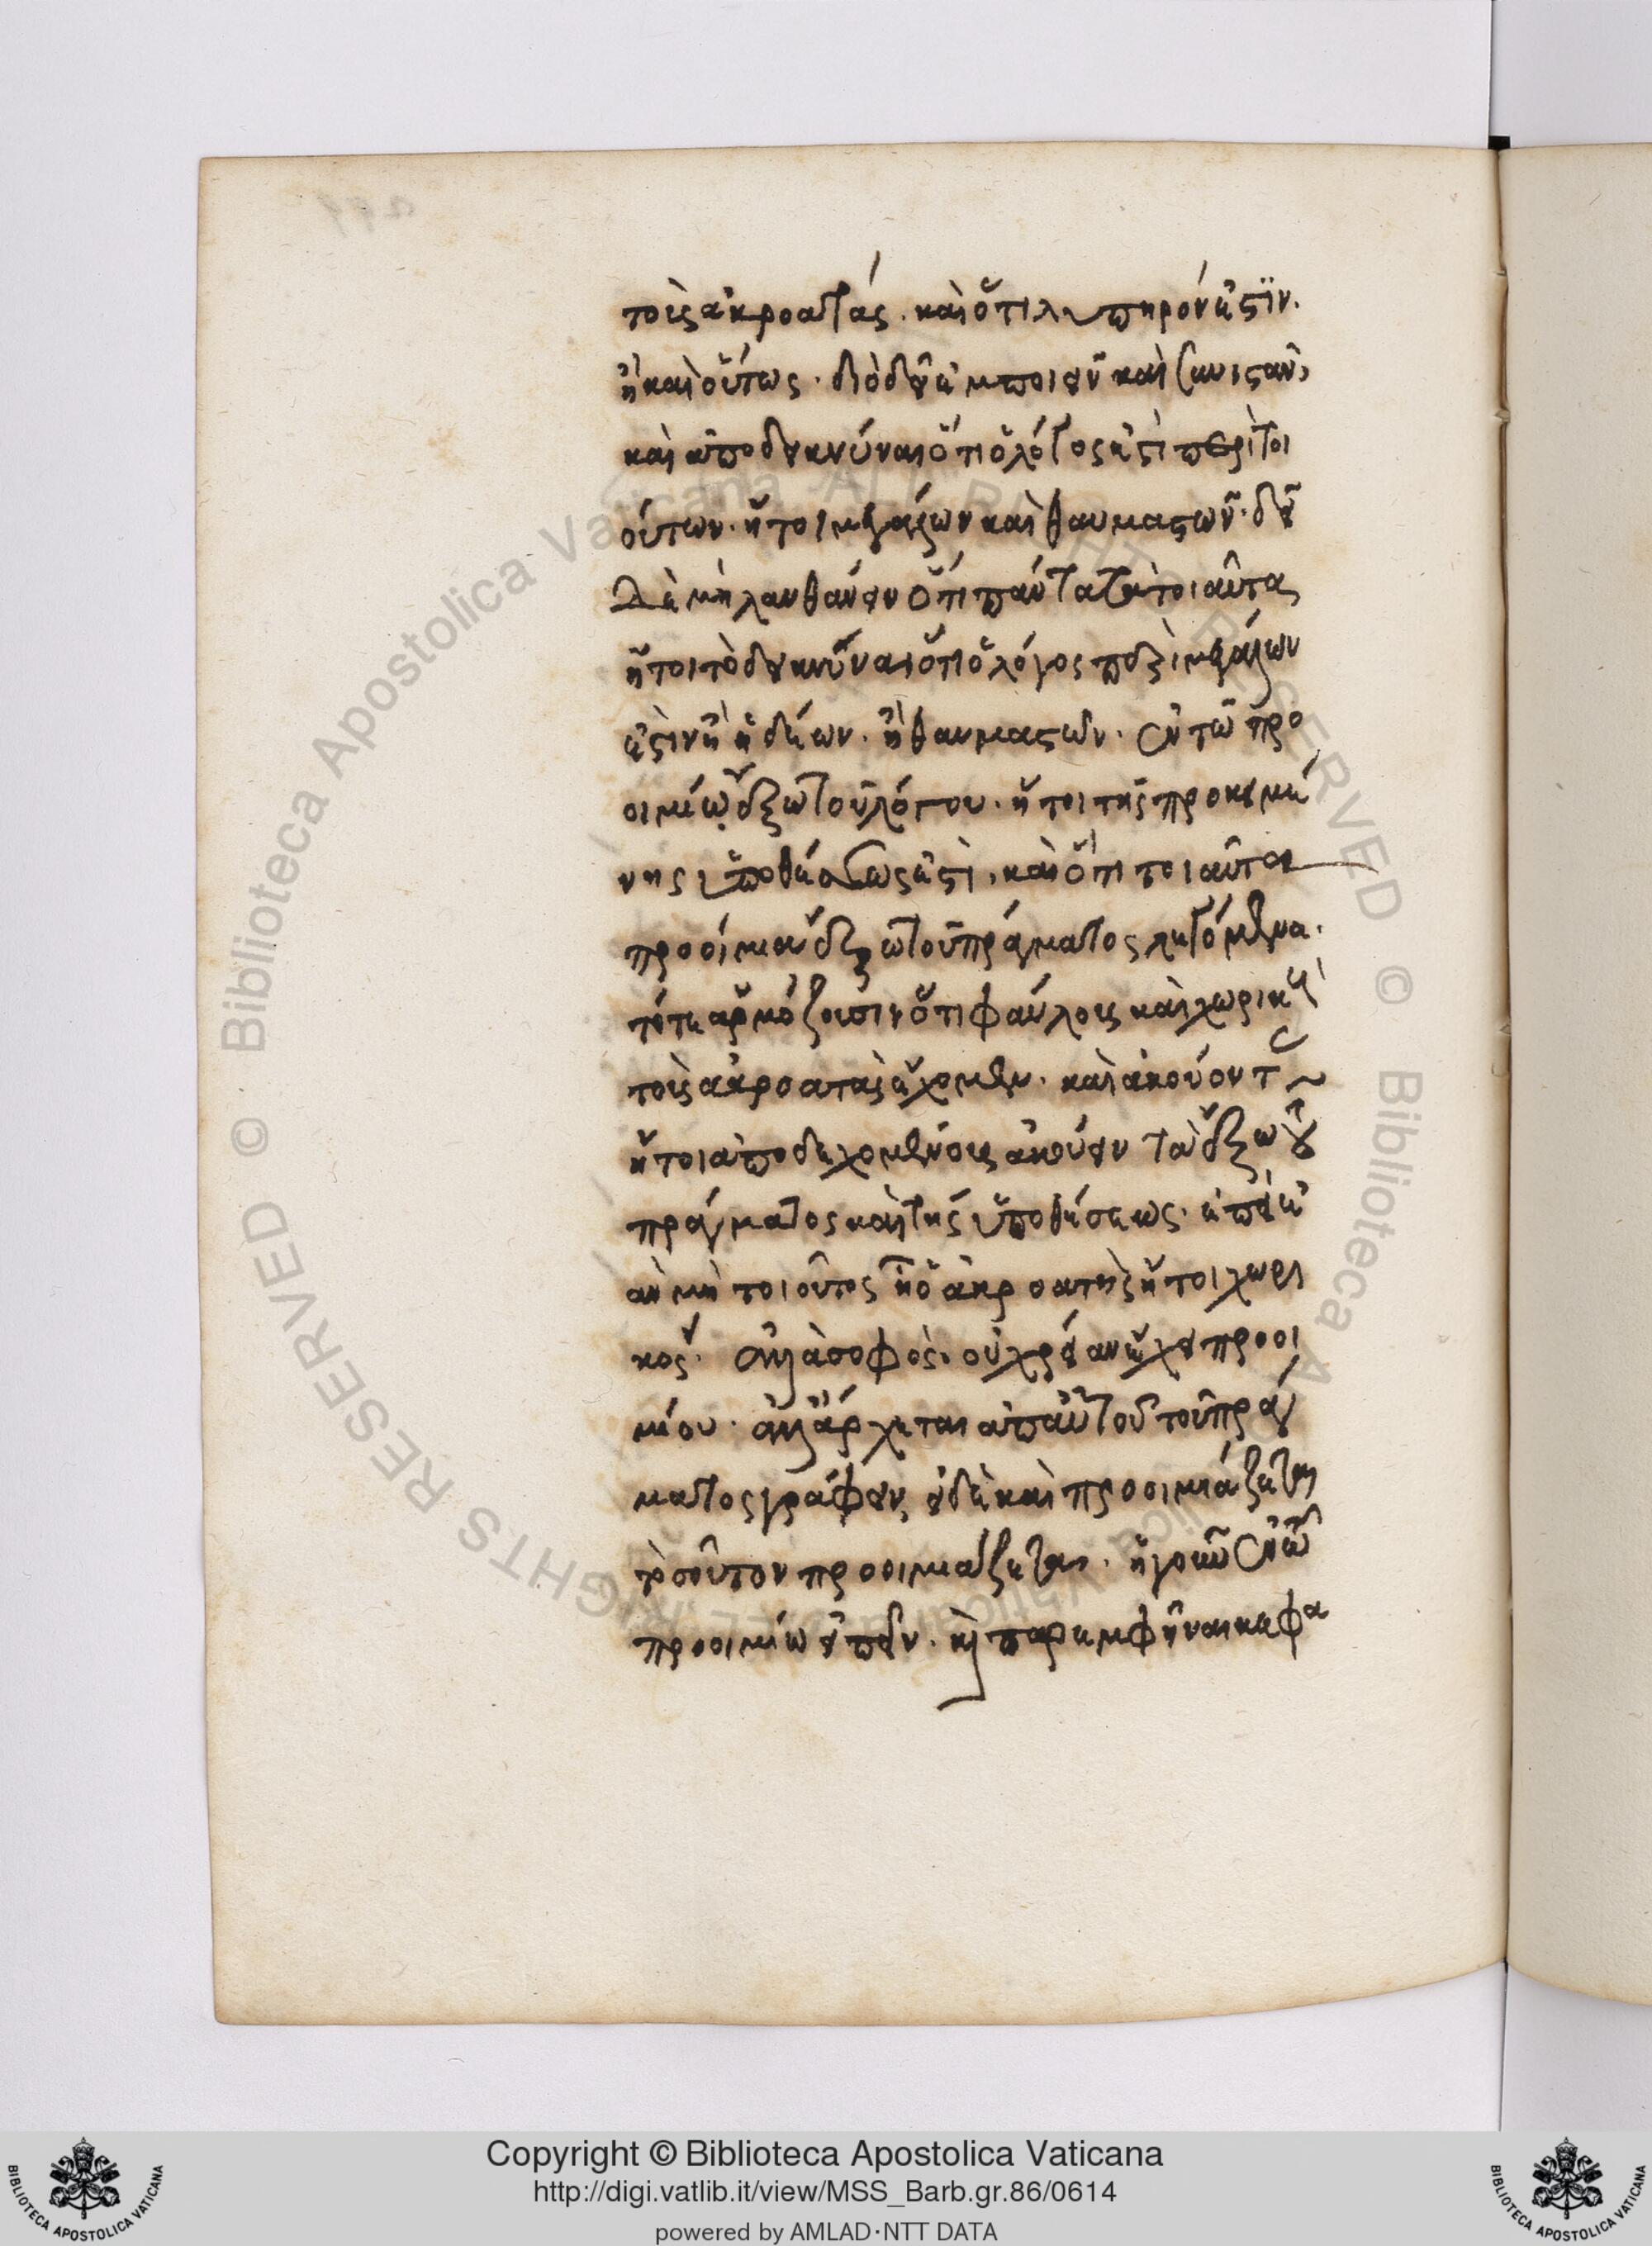 τοὺς ἀκροατάς. καὶ ὅτι λυπηρόν ἐστϊν.
ἢ καὶ οὕτως. διὸ δεῖ ἐμποιεῖν καὶ συνιστᾶν,
καὶ ἀποδεικνύναι ὅτι ὁ λόγος ἐστὶ περὶ τοι
ούτων. ἤτοι μεγάλων καὶ θαυμαστῶν. δεῖ
δὲ μὴ λανθάνειν ὅτι πάντα τὰ τοιαῦτα,
ἤτοι τὸ δεικνῦναι ὅτι ὁ λόγος περὶ μεγάλων
ἐστὶν ἢ ἡδέων. ἢ θαυμαστῶν. ἐν τῶ προ
οιμίω, ἔξω τοῦ λόγου. ἤτοι τῆς προκειμέ
νης ὑποθέσεως ἐστὶ, καὶ ὅτι τοιαῦτα
προοίμια ἔξω τοῦ πράγματος λεγόμενα.
τότε ἁρμόζουσιν ὅτι φαύλους καὶ χωρικοὺς
τοὺς ἀκροατὰς ἔχομεν. καὶ ἀκούοντας
ἤτοι ἀποδεχομένους ἀκούειν τὰ ἔξω τοῦ
πράγματος καὶ τῆς ὑποθέσεως. ἐπεὶ ἐ
ὰν μὴ τοιοῦτος ἦ ὁ ἀκροατὴς ἤτοι χωρι
κός. ἀλλὰ σοφὸς. οὐ χρείαν ἔχει προοι
μίου. ἀλλ' ἄρχεται ἀπ' αὐτοῦ τοῦ πράγ
ματος γράφειν, εἰ δὲ καὶ προοιμιάζεται
τοσοῦτον προοιμιάζεται. ἤγουν ἐν τῶ
προοιμίω εἰπεῖν. καὶ παρεμφῆναι κεφα